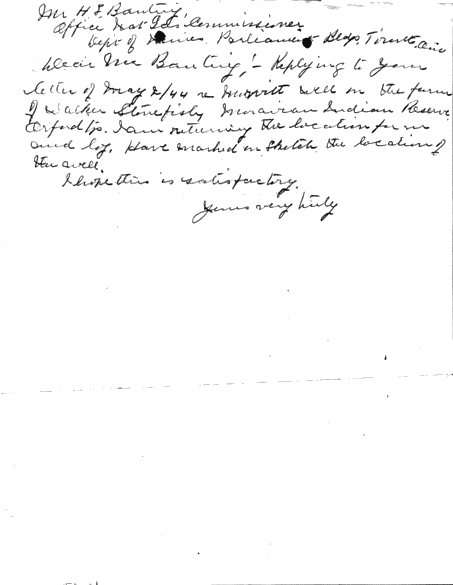 Mr H S Banting,
Office Nat Gas Commissioner
Dept of Mines. Parliament Bldgs, Toronto, Ont
Dear Mr Banting,!- Replying to your
letter of May 2/44 re well on the farm
of Stonefish, Moravian Indian Reserve
Orford Tp. I am returning the location form
and log. Have marked on sketch the location of
the well.
I hope this is satisfactory.
Yours very truly